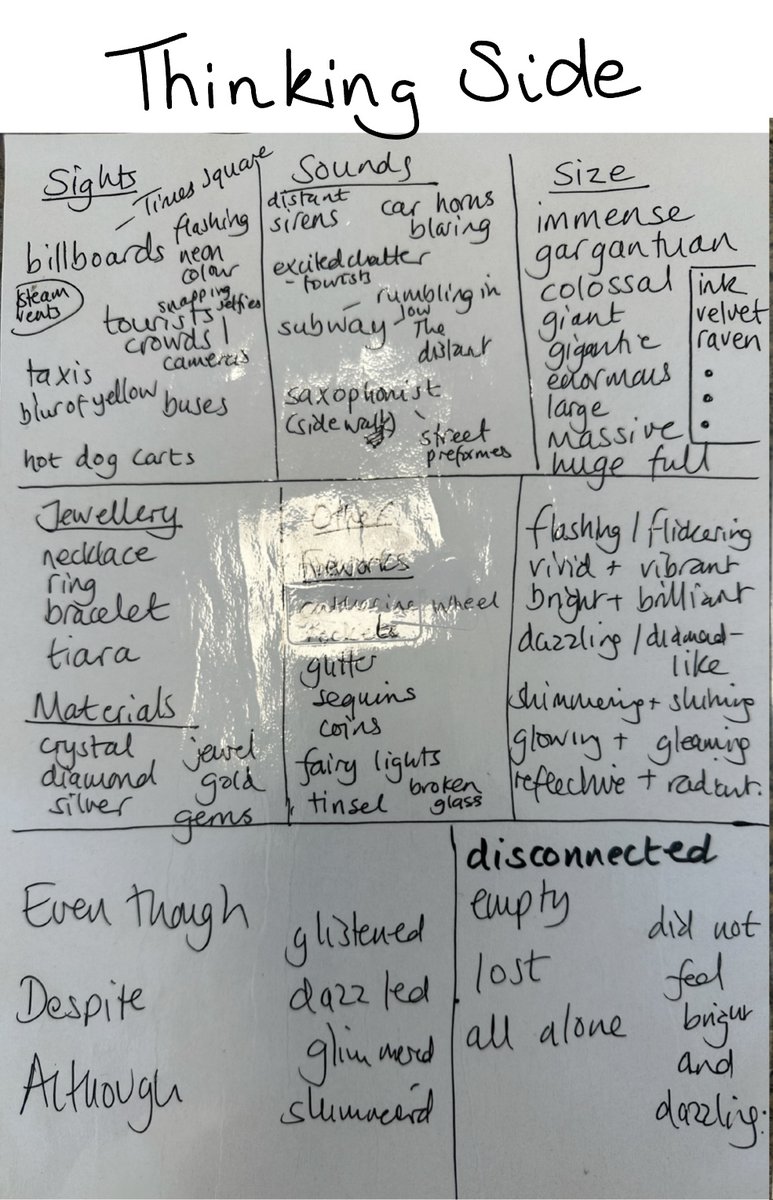 Thinking Side
Sights
Times Square
billboards
flashing
neon
colour
steam
vents
snapping
selfies
tourists
crowds
cameras
taxis
blur of yellow
buses
hot dog carts
Sounds
distant
sirens
car horns
blaring
excited chatter
- tourists
subway
rumbling in
low
The
distant
saxophonist
(side walk)
street
preformes
Size
immense
gargantuan
colossal
giant
gigantic
enormous
large
massive
huge full
ink
velvet
raven
Jewellery
necklace
ring
bracelet
tiara
Materials
crystal jewel
diamond gold
silver gems
Other
fireworks
catherine wheel
rockets
glitter
sequins
coins
fairy lights
tinsel
broken
glass
flashing / flickering
vivid + vibrant
bright + brilliant
dazzling / diamond-
like
shimmering + shining
glowing + gleaming
reflective + radiant.
Even though
Despite
Although
glistened
dazzled
glimmerd
shimmered
disconnected
empty
lost
all alone
did not
feel
bright
and
dazzling.